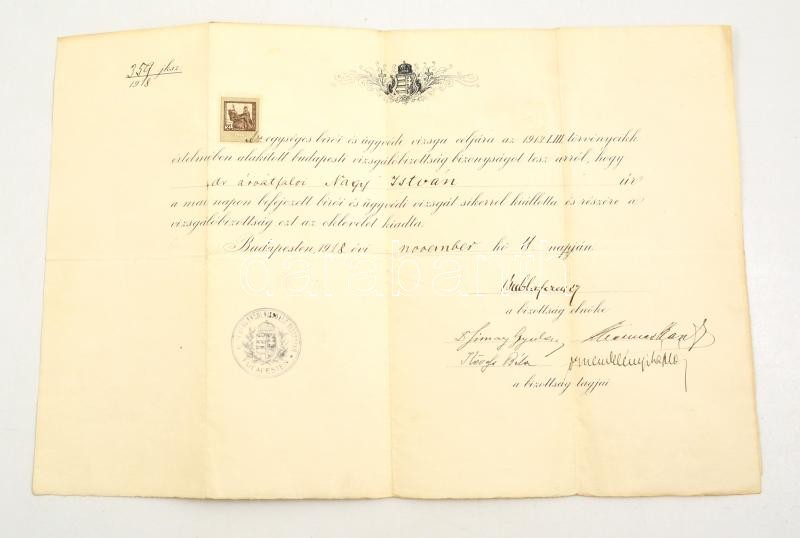 359 jksz.
1918
Az egységes birói és ügyvédi vizsga céljára az 1913:LIII. törvénycikk
értelmében alakitott budapesti vizsgálóbizottság bizonyságot tesz arról, hogy
dr árvátfalvi Nagy István úr
a mai napon befejezett birói és ügyvédi vizsgát sikerrel kiállotta és részére a
vizsgálóbizottság ezt az oklevelet kiadta.
Budapesten, 1918. évi november hó napján.
a bizottság elnöke
Dr Gyula
Béla
a bizottság tagjai
BUDAPESTEN